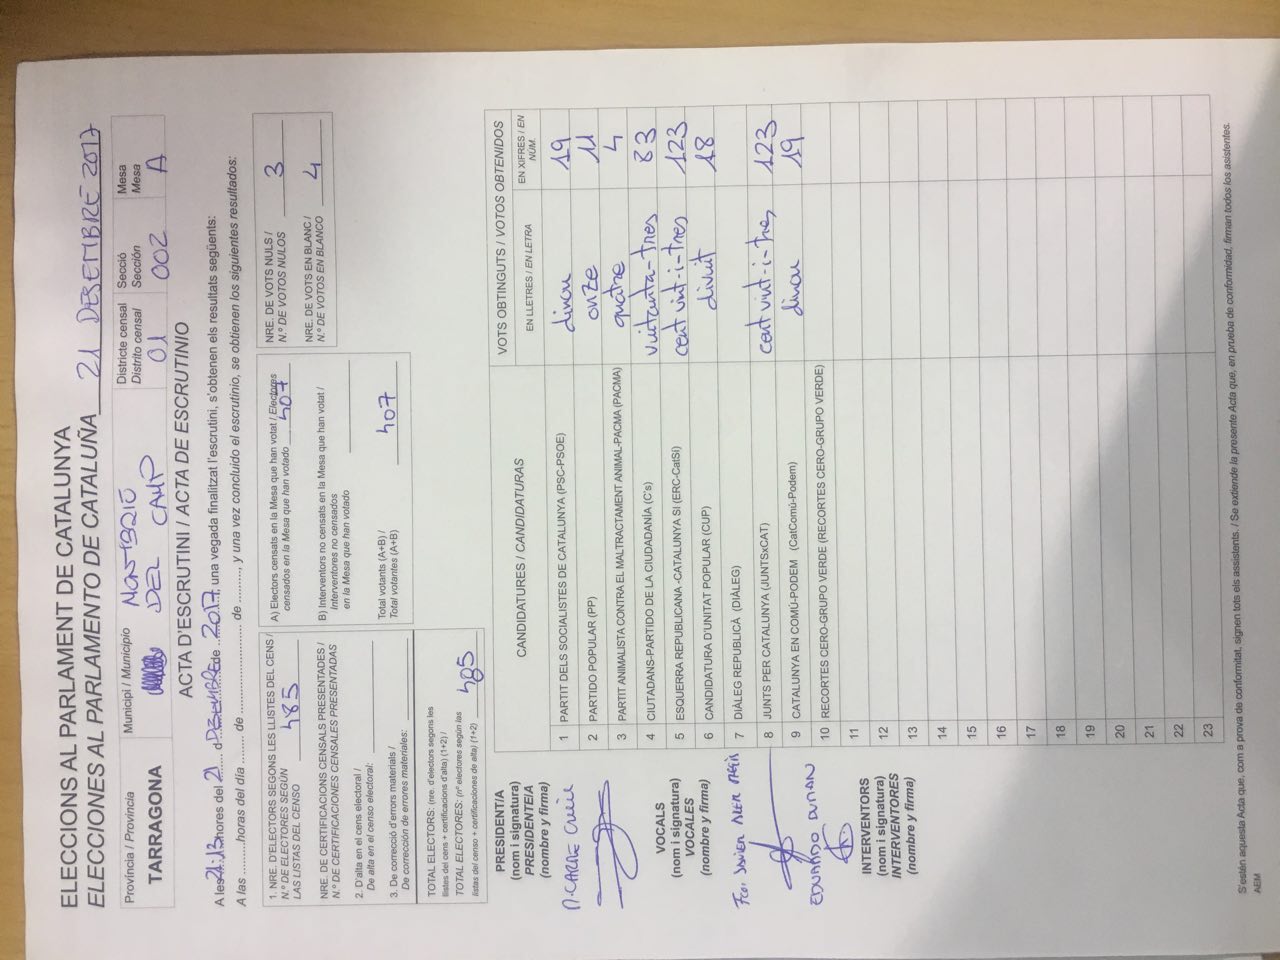 ELECCIONS AL PARLAMENT DE CATALUNYA
ELECCIONES AL PARLAMENTO DE CATALUÑA 21 DESEMBRE 2017
Província / Provincia
TARRAGONA
Municipi / Municipio
MONTBRIÓ
DEL CAMP
Districte censal
Distrito censal
01
Secció
Sección
002
Mesa
Mesa
A
ACTA D'ESCRUTINI / ACTA DE ESCRUTINIO
A les 21:13 hores del 21 d DESEMBRE de 2017, una vegada finalitzat l'escrutini, s'obtenen els resultats següents:
A las ............horas del día ........ de ........................ de .........., y una vez concluido el escrutinio, se obtienen los siguientes resultados:
1. NRE. D'ELECTORS SEGONS LES LLISTES DEL CENS /
N.º DE ELECTORES SEGÚN
LAS LISTAS DEL CENSO 485
NRE. DE CERTIFICACIONS CENSALS PRESENTADES /
N.º DE CERTIFICACIONES CENSALES PRESENTADAS
2. D'alta en el cens electoral /
De alta en el censo electoral:
3. De correcció d'errors materials /
De corrección de errores materiales:
TOTAL ELECTORS: (nre. d'electors segons les
llistes del cens + certificacions d'alta) (1+2) /
TOTAL ELECTORES: (nº electores según las
listas del censo + certificaciones de alta) (1+2) 485
A) Electors censats en la Mesa que han votat / Electores
censados en la Mesa que han votado 407
B) Interventors no censats en la Mesa que han votat /
Interventores no censados
en la Mesa que han votado
Total votants (A+B) /
Total votantes (A+B) 407
NRE. DE VOTS NULS /
N.º DE VOTOS NULOS 3
NRE. DE VOTS EN BLANC /
N.º DE VOTOS EN BLANCO 4
CANDIDATURES / CANDIDATURAS
VOTS OBTINGUTS / VOTOS OBTENIDOS
EN LLETRES / EN LETRA
EN XIFRES / EN NÚM.
1 PARTIT DELS SOCIALISTES DE CATALUNYA (PSC-PSOE) dinou 19
2 PARTIDO POPULAR (PP) onze 11
3 PARTIT ANIMALISTA CONTRA EL MALTRACTAMENT ANIMAL-PACMA (PACMA) quatre 4
4 CIUTADANS-PARTIDO DE LA CIUDADANÍA (C's) vuitanta-tres 83
5 ESQUERRA REPUBLICANA -CATALUNYA SI (ERC-CatSí) cent vint-i-tres 123
6 CANDIDATURA D'UNITAT POPULAR (CUP) divuit 18
7 DIÀLEG REPUBLICÀ (DIÀLEG)
8 JUNTS PER CATALUNYA (JUNTSxCAT) cent vint-i-tres 123
9 CATALUNYA EN COMÚ-PODEM (CatComú-Podem) dinou 19
10 RECORTES CERO-GRUPO VERDE (RECORTES CERO-GRUPO VERDE)
11
12
13
14
15
16
17
18
19
20
21
22
23
PRESIDENT/A
(nom i signatura)
PRESIDENTE/A
(nombre y firma)
VOCALS
(nom i signatura)
VOCALES
(nombre y firma)
EDUARDO DURAN
INTERVENTORS
(nom i signatura)
INTERVENTORES
(nombre y firma)
S'estén aquesta Acta que, com a prova de conformitat, signen tots els assistents. / Se extiende la presente Acta que, en prueba de conformidad, firman todos los asistentes.
AEM